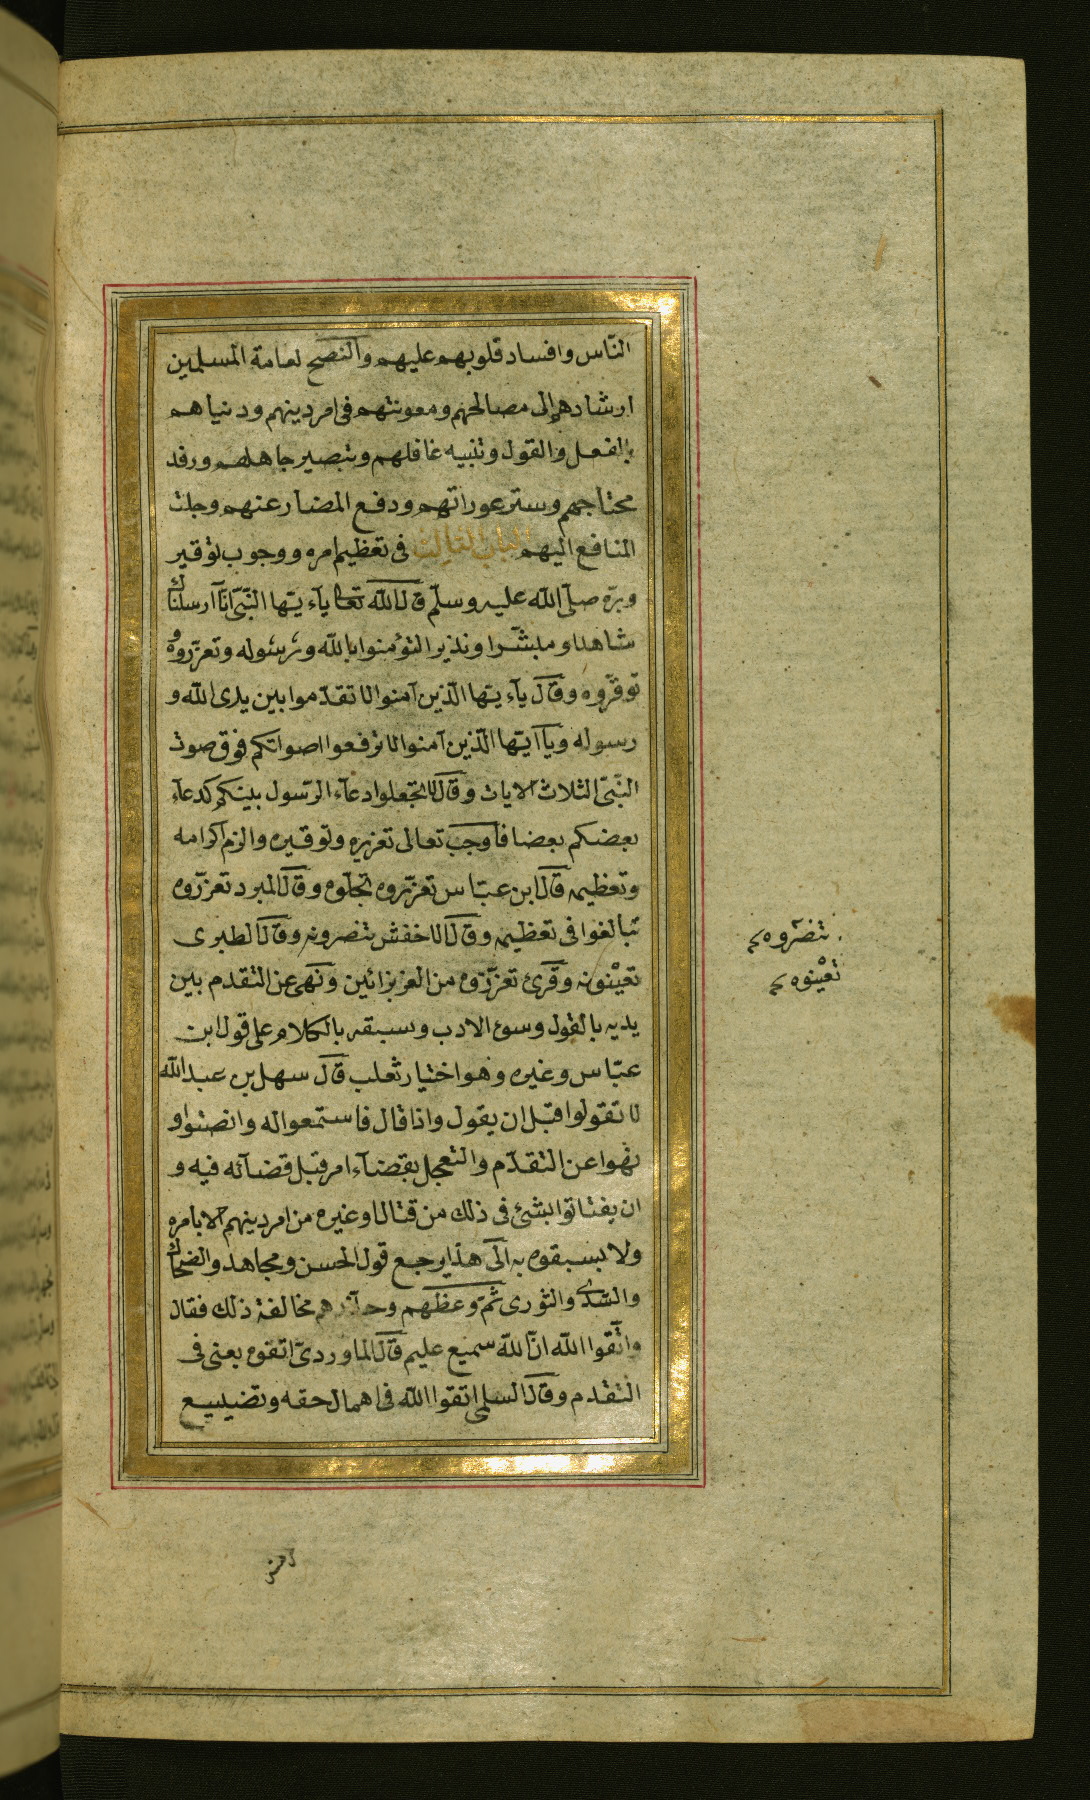 النّاس وافساد قلوبهم عليهم والنصح لعامة المسلمين
ارشادهم إلى مصالحهم ومعونتهم فى امر دينهم ودنياهم
بالفعل والقول وتنبيه غافلهم وتبصير جاهلهم ورفد
محتاجهم وستر عوراتهم ودفع المضار عنهم وجلب
المنافع اليهم الباب الثالث فى تعظيم امره ووجوب توقير
وبرّه صلى الله عليه وسلّم قال الله تعالى يآءيّها النّبىّ انّآ ارسلناك
شاهدا ومبشّرا ونذيرا لتؤمنوا بالله ورسوله وتعزّروه و
توقّروه وقال يآءيّها الّذين آمنوا لا تقدّموا بين يدى الله و
رسوله ويآ ايّها الّذين آمنوا لا ترفعوا اصواتكم فوق صوت
النّبىّ الثلاث الايات وقال لا تجعلوا دعآء الرّسول بينكم كدعآء
بعضكم بعضا فأوجب تعالى تعزيره وتوقيره والزم اكرامه
وتعظيمه قال ابن عبّاس تعزّروه تجلّوه وقال المبرد تعزّروه
تبالغوا فى تعظيمه وقال الاخفش تنصرونه وقال الطبرى
تعينونه وقرئ تعزّزوه من العز بزائين ونهى عن التقدم بين
يديه بالقول وسوء الادب وسبقه بالكلام على قول ابن
عبّاس وغيره وهو اختيار ثعلب قال سهل بن عبد الله
لا تقولوا قبل ان يقول واذا قال فاستمعوا له وانصتوا و
نهوا عن التقدّم والتعجل بقضآء امر قبل قضآئه فيه و
ان يفتاتوا بشئ فى ذلك من قتال او غيره من امر دينهم الا بامره
ولا يسبقوه به الى هذا يرجع قول الحسن ومجاهد والضحاك
والسّدى والثورى ثمّ وعظهم وحذرهم مخالفة ذلك فقال
واتّقوا الله انّ الله سميع عليم قال الماوردىّ اتقوه يعنى فى
التقدم وقال السلمى اتقوا الله فى اهمال حقه وتضييع
تنصروه
تعينوه